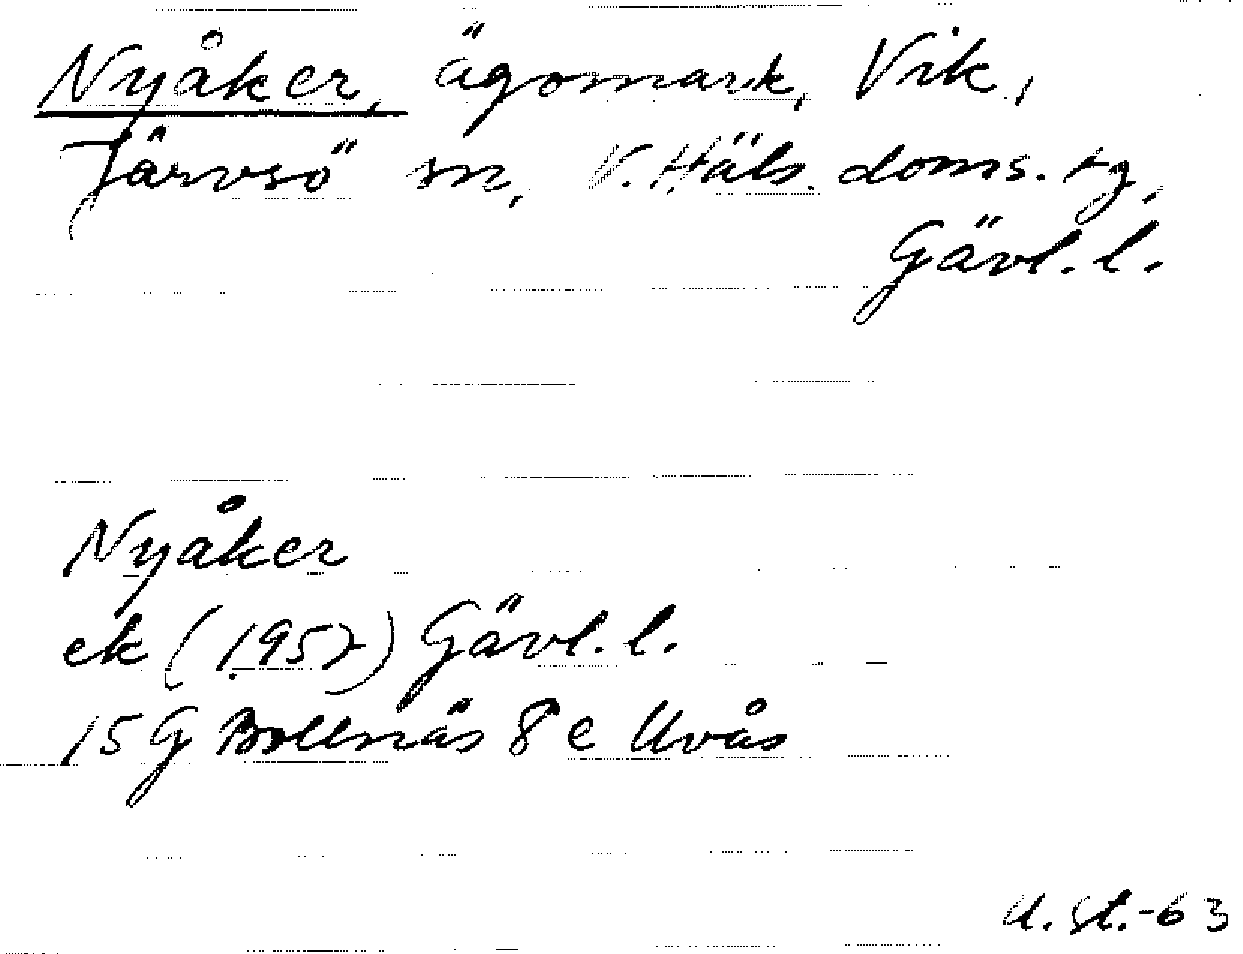 Nyåker, ägomark, Vik,
Järvsö sn, V. Häls. doms. tg,
Gävl. l.
Nyåker
ek (1957) Gävl. l.
15 G Bollnäs 8 e Uvås
U. St.-63